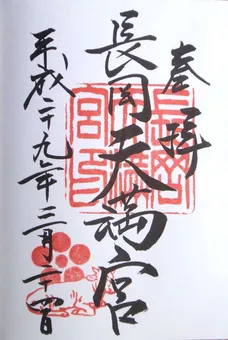 奉拝
長岡天満宮
平成二十九年三月二十四日